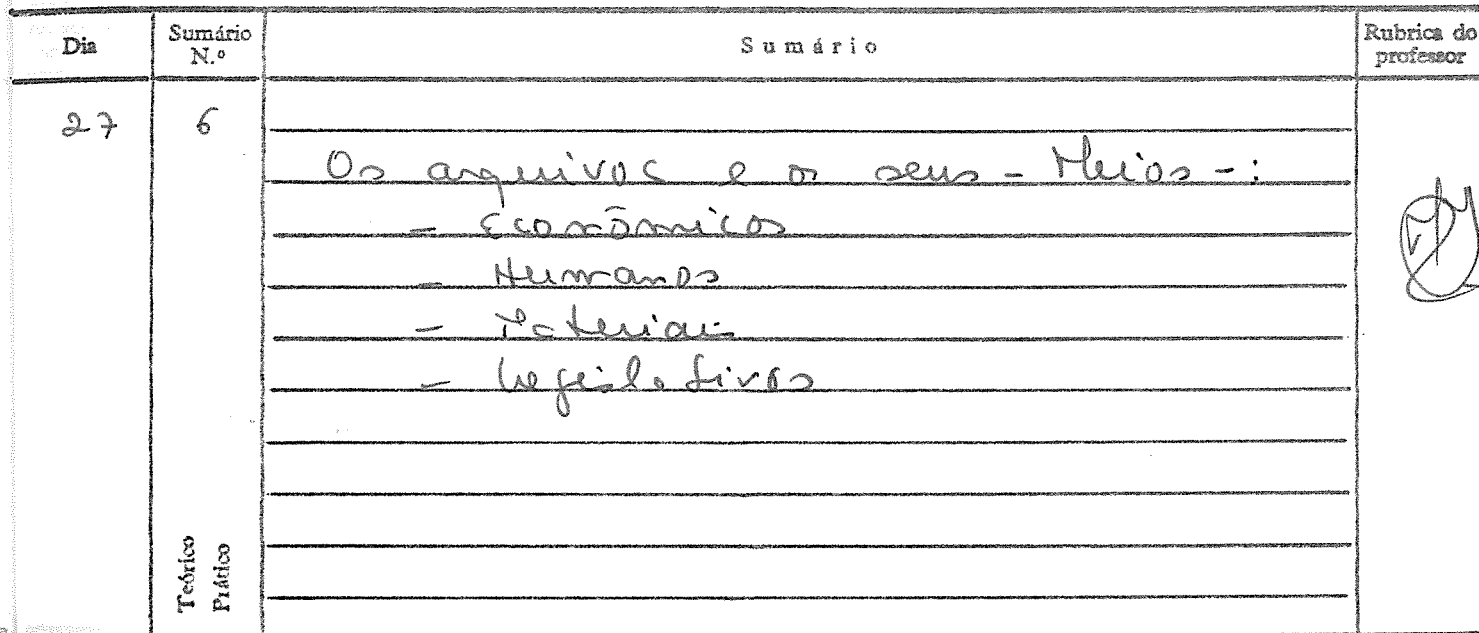 Dia
Sumário N.º
Sumário
Rubrica do professor
27
6
Os arquivos e os seus - Meios - :
- Económicos
- Humanos
- Materiais
- Legislativos
Teórico
Prático